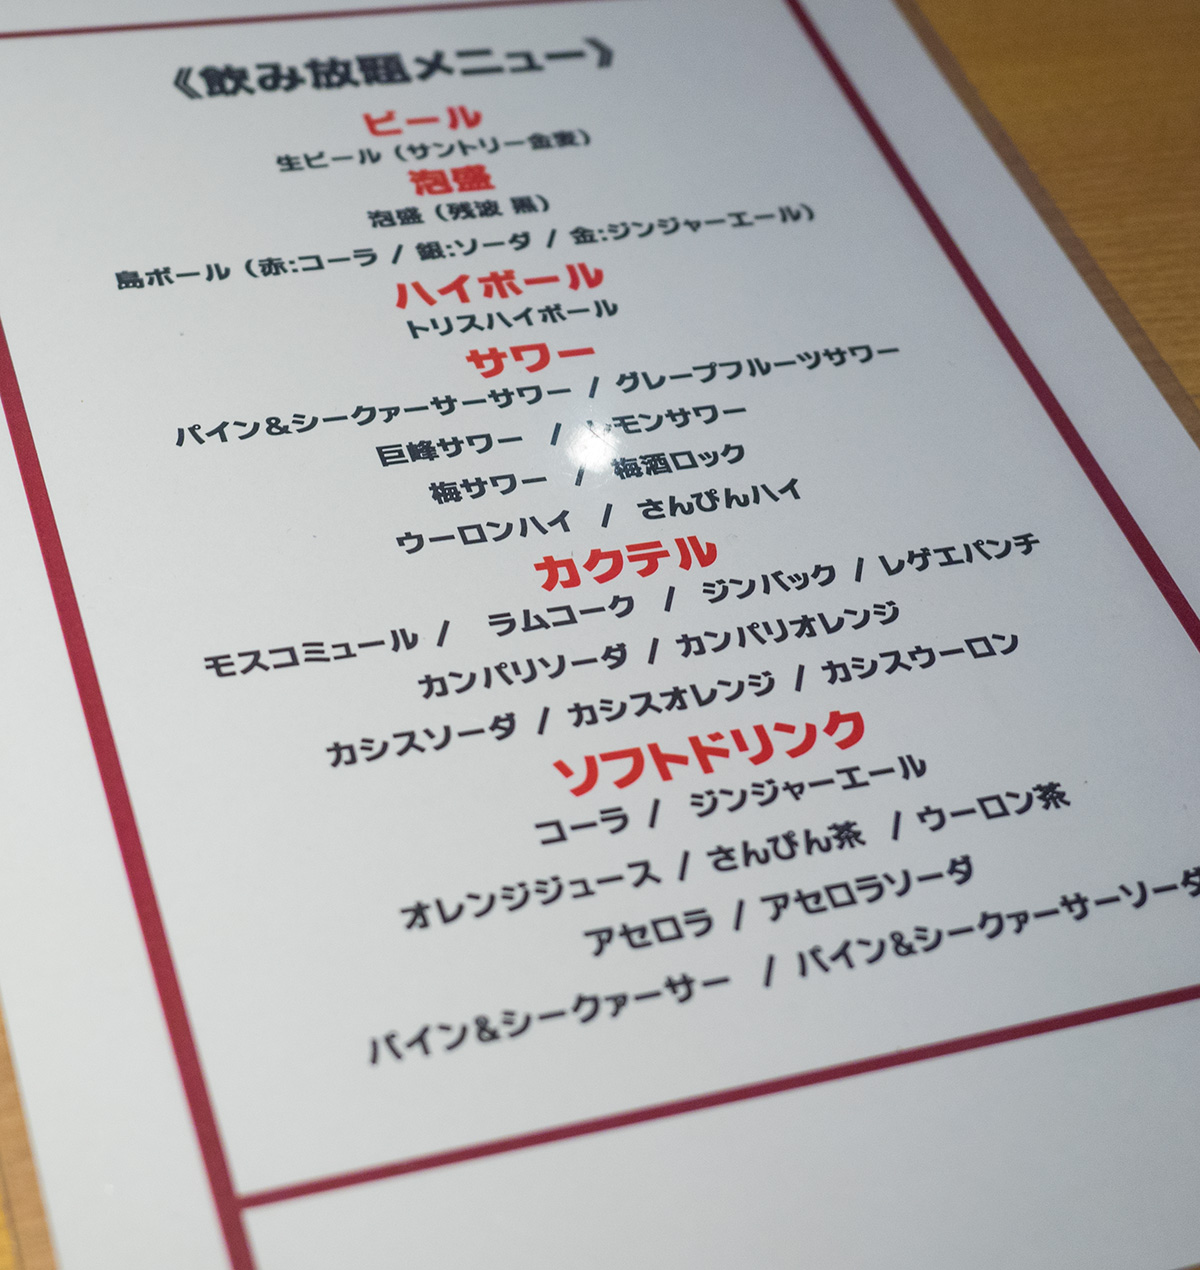 《飲み放題メニュー》
ビール
生ビール（サントリー金麦）
泡盛
泡盛（残波 黒）
島ボール（赤:コーラ / 銀:ソーダ / 金:ジンジャーエール）
ハイボール
トリスハイボール
サワー
パイン&シークァーサーサワー / グレープフルーツサワー
巨峰サワー / レモンサワー
梅サワー / 梅酒ロック
ウーロンハイ / さんぴんハイ
カクテル
モスコミュール / ラムコーク / ジンバック / レゲエパンチ
カンパリソーダ / カンパリオレンジ
カシスソーダ / カシスオレンジ / カシスウーロン
ソフトドリンク
コーラ / ジンジャーエール
オレンジジュース / さんぴん茶 / ウーロン茶
アセロラ / アセロラソーダ
パイン&シークァーサー / パイン&シークァーサーソーダ